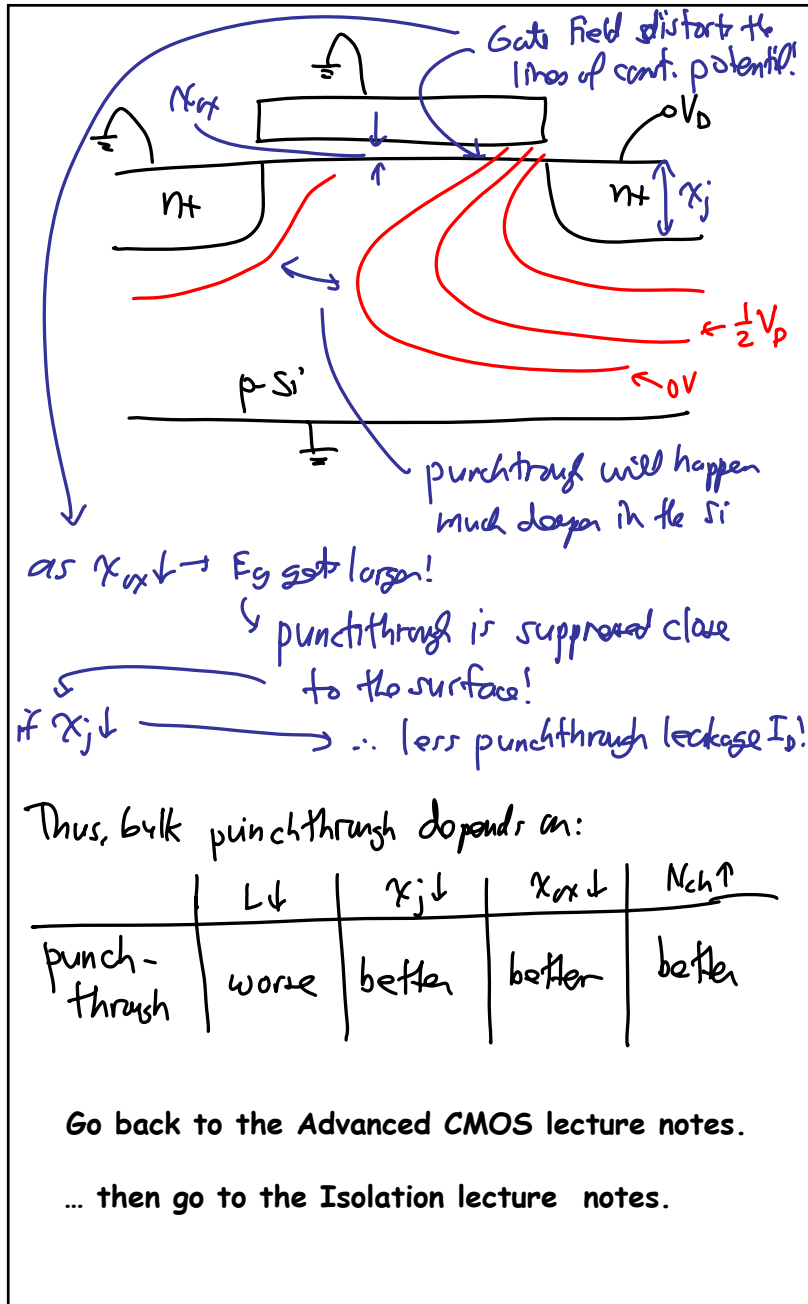 Gate Field distorts the
lines of const. potential!
x_ox
V_D
n+
n+
x_j
← ½ V_D
← 0V
p-Si
punchtrough will happen
much deeper in the Si
as x_ox ↓ → Eg gets larger!
punchthrough is suppressed close
to the surface!
if x_j ↓ → ∴ less punchthrough leakage I_D!
Thus, bulk punchthrough depends on:
L↓ x_j ↓ x_ox ↓ N_ch ↑
punch-
through worse better better better
Go back to the Advanced CMOS lecture notes.
… then go to the Isolation lecture notes.